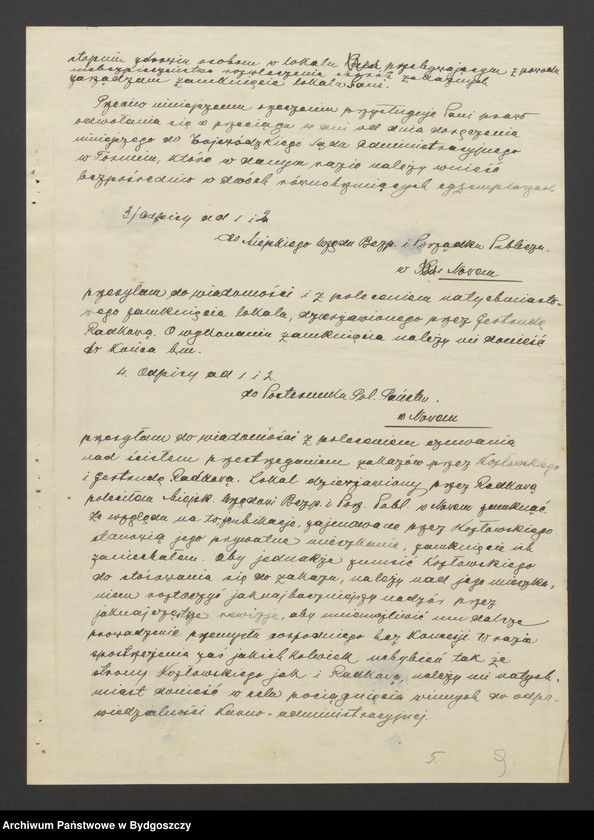 stopniu zdrowiu osobom w lokalu przebywającym z powodu
niebezpieczeństwa rozwleczenia chorób zakaźnych
zarządzam zamknięcie lokalu Pani.
Przeciw niniejszemu orzeczeniu przysługuje Pani prawo
odwołania się w przeciągu dni od dnia doręczenia
niniejszego do Wojewódzkiego Sądu Administracyjnego
w Toruniu, które w danym razie należy wnieść
bezpośrednio w dwóch równobrzmiących egzemplarzach.
3/ Odpisy ad 1 i 2
do Miejskiego Urzędu Bezp. i Porządku Publiczn.
w Nowem
przesyłam do wiadomości i z poleceniem natychmiasto-
wego zamknięcia lokalu, dzierżawionego przez Gertrudę
Radkową. O wykonaniu zamknięcia należy mi donieść
do końca b.m.
4. Odpisy ad 1 i 2.
do Posterunku Pol. Państw.
w Nowem
przesyłam do wiadomości z poleceniem czuwania
nad ścisłem przestrzeganiem zakazów przez Kozłowskiego
i Gertrudę Radkową. Lokal dzierżawiony przez Radkową
poleciłam Miejsk. Urzędowi Bezp. i Porz. Publ. w Nowem zamknąć.
Ze względu na to, że ubikacje, zajmowane przez Kozłowskiego
stanowią jego prywatne mieszkanie, zamknięcia ich
zaniechałem. Aby jednakże zmusić Kozłowskiego
do stosowania się do zakazu, należy nad jego mieszka-
niem roztoczyć jaknajbaczniejszy nadzór przez
jaknajczęstsze rewizje, aby uniemożliwić mu dalsze
prowadzenie przemysłu gospodniego bez koncesji. W razie
spostrzeżenia zaś jakichkolwiek uchybień tak ze
strony Kozłowskiego jak i Radkową, należy mi natych-
miast donieść w celu pociągnięcia winnych do odpo-
wiedzialności karno-administracyjnej.
5
Archiwum Państwowe w Bydgoszczy